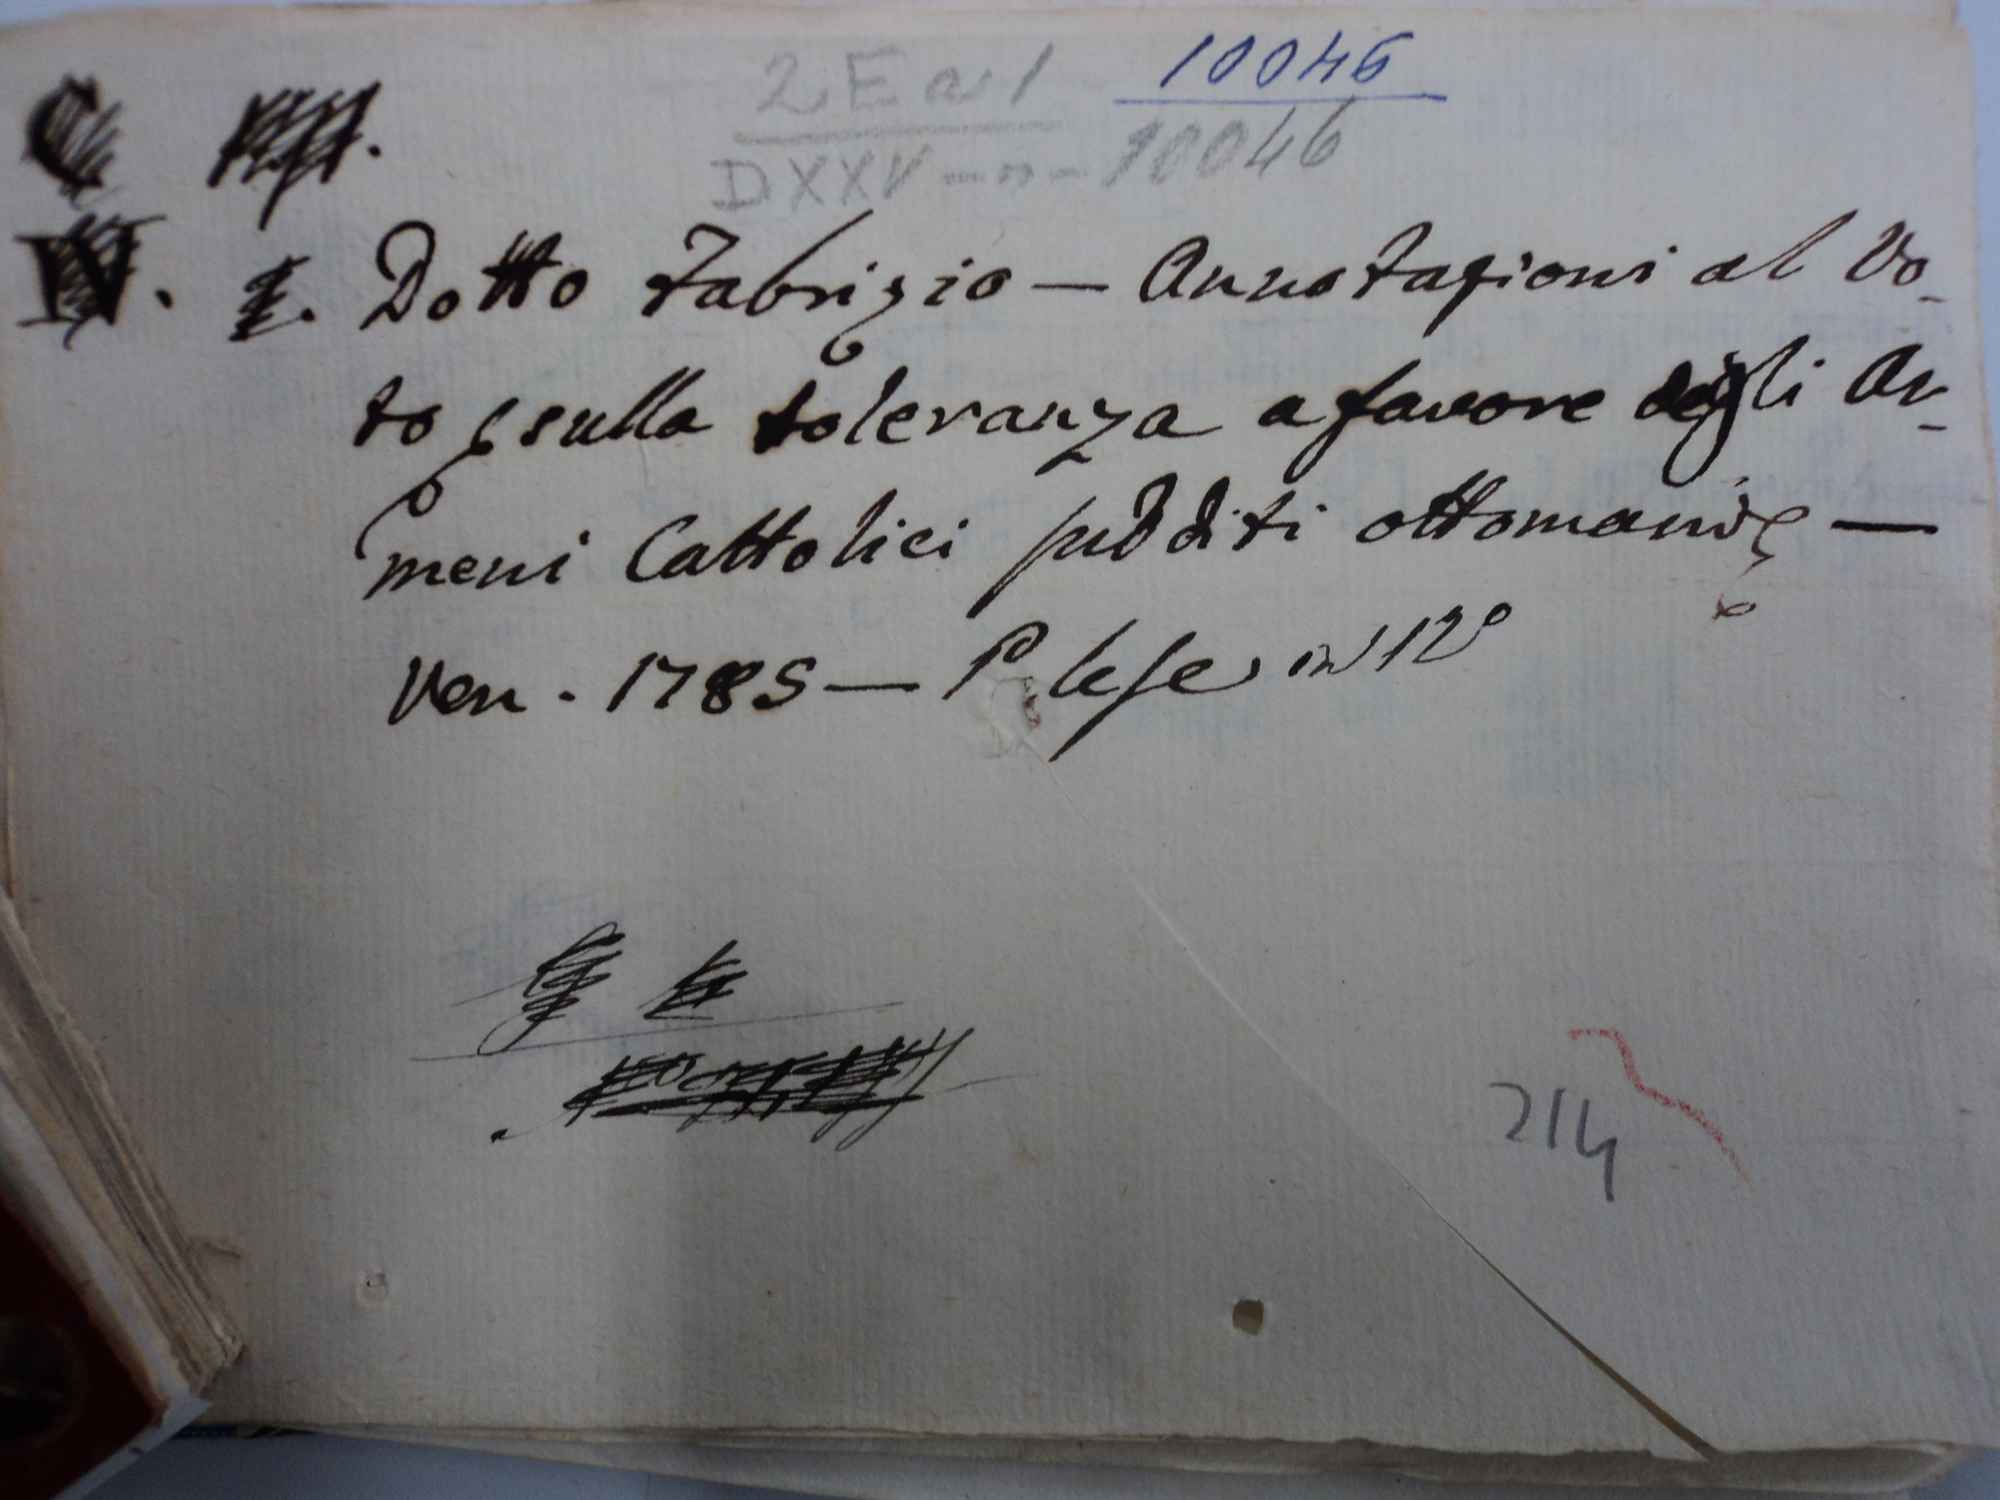 2 E a 1 10046
DXXV - n - 10046
C
IV. Dotto Fabrizio — Annotazioni al Vo-
to sulla toleranza a favore degli Ar-
meni Cattolici sudditi ottomani —
Ven. 1785 — P. lese in 12º
214